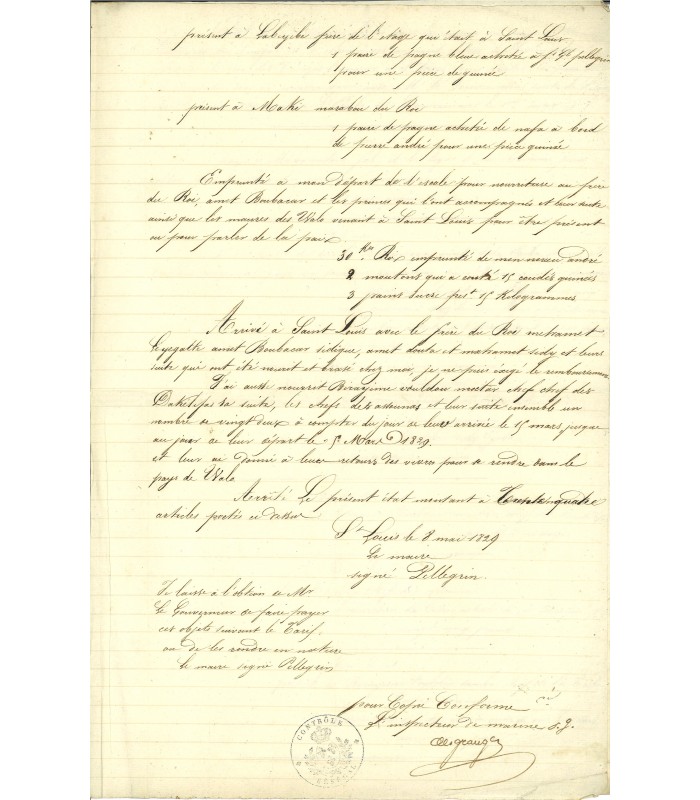 présent à Labeybe frère de l'otage qui était à Saint Louis
1 paire de pagne bleue achetée à pellegrin
pour une pièce de guinée
présent à Maké marabou du Roi
1 paire de pagne achetée de nafa à bord
de pierre andré pour une pièce guinée
Emprunté à mon départ de l'escale pour nourriture au frère
du Roi, amet Boubacar et les princes qui l'ont accompagnés et leur suite
ainsi que les maures des Walo venant à Saint Louis pour être présent
ou pour parler de la paix
30 Riz emprunté de mon neveu andré
2 moutons qui a couté 15 coudés guinées
3 pains sucre pest 15 Kilogrammes
Arrivé à Saint Louis avec le frère du Roi mohamet
amet Boubacar sidique, amet doula et mahamet sidy et leurs
suite qui ont été nourit et chez moi, je ne puis éxigé le remboursement
J'ai aussi nourrit Birayime vouldou moctar chef des
sa suite, les chefs des et leur suite ensemble un
nombre de vingt deux à compter du jour de leur arrivée le 15 mars, jusque
au jour de leur départ le 5 Mai 1829
et leur ai donné à leur retour des vivres pour se rendre dans le
pays de Walo
Arrêté Le présent état montant à Trente quatre
articles portés ci dessus
St Louis le 8 mai 1829
Le maire
signé Pellegrin
Je laisse à l'obtion de Mr
Le Gouverneur de faire payer
ces objets suivant le Tarif
ou de les rendre en nature
Le maire signé Pellegrin
pour Copie Conforme
L'inspecteur de marine
CONTRÔLE